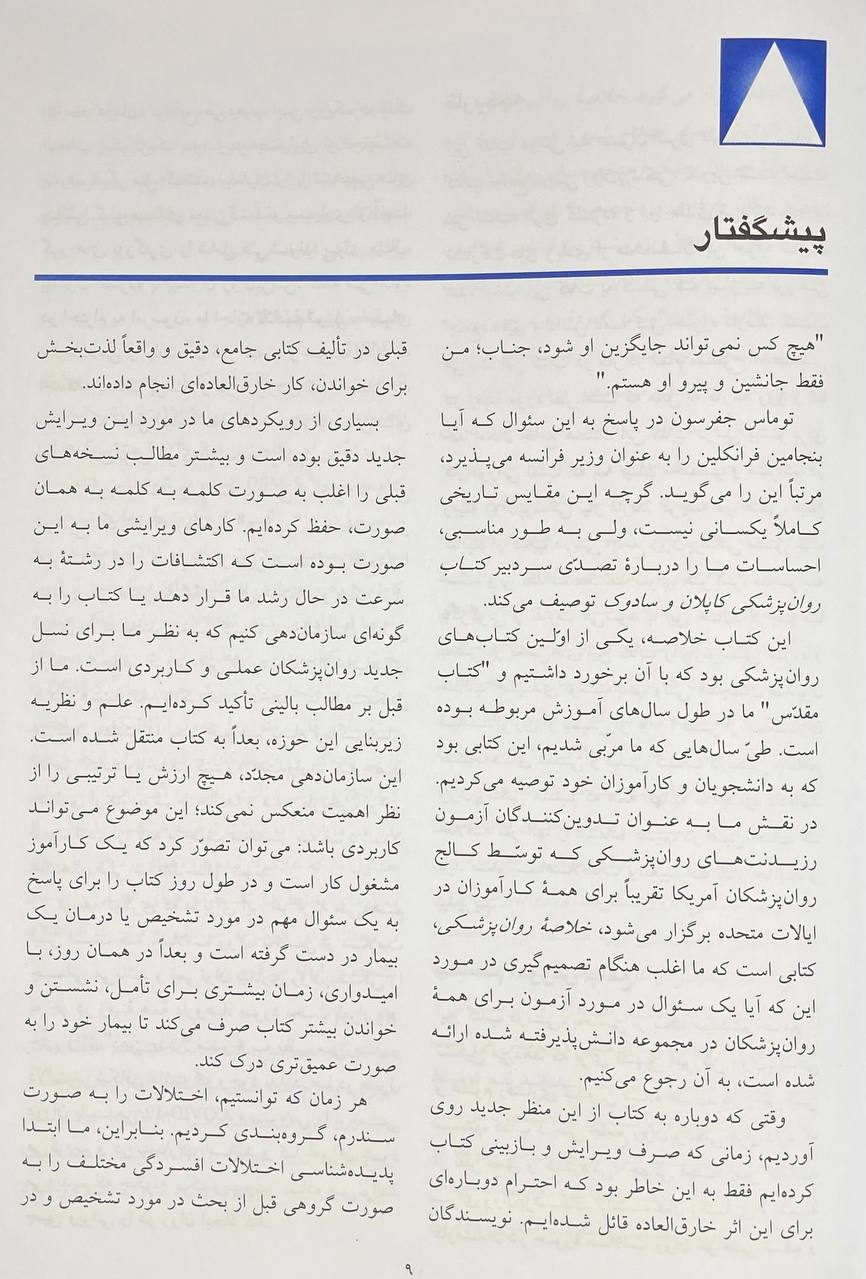 پیشگفتار
"هیچ کس نمی‌تواند جایگزین او شود، جناب؛ من
فقط جانشین و پیرو او هستم."
توماس جفرسون در پاسخ به این سئوال که آیا
بنجامین فرانکلین را به عنوان وزیر فرانسه می‌پذیرد،
مرتباً این را می‌گوید. گرچه این مقایس تاریخی
کاملاً یکسانی نیست، ولی به طور مناسبی،
احساسات ما را دربارۀ تصدّی سردبیر کتاب
روان‌پزشکی کاپلان و سادوک توصیف می‌کند.
این کتاب خلاصه، یکی از اوّلین کتاب‌های
روان‌پزشکی بود که با آن برخورد داشتیم و "کتاب
مقدّس" ما در طول سال‌های آموزش مربوطه بوده
است. طیّ سال‌هایی که ما مربّی شدیم، این کتابی بود
که به دانشجویان و کارآموزان خود توصیه می‌کردیم.
در نقش ما به عنوان تدوین‌کنندگان آزمون
رزیدنت‌های روان‌پزشکی که توسّط کالج
روان‌پزشکان آمریکا تقریباً برای همۀ کارآموزان در
ایالات متحده برگزار می‌شود، خلاصۀ روان‌پزشکی،
کتابی است که ما اغلب هنگام تصمیم‌گیری در مورد
این که آیا یک سئوال در مورد آزمون برای همۀ
روان‌پزشکان در مجموعه دانش‌پذیرفته شده ارائه
شده است، به آن رجوع می‌کنیم.
وقتی که دوباره به کتاب از این منظر جدید روی
آوردیم، زمانی که صرف ویرایش و بازبینی کتاب
کرده‌ایم فقط به این خاطر بود که احترام دوباره‌ای
برای این اثر خارق‌العاده قائل شده‌ایم. نویسندگان
قبلی در تألیف کتابی جامع، دقیق و واقعاً لذت‌بخش
برای خواندن، کار خارق‌العاده‌ای انجام داده‌اند.
بسیاری از رویکردهای ما در مورد این ویرایش
جدید دقیق بوده است و بیشتر مطالب نسخه‌های
قبلی را اغلب به صورت کلمه به کلمه به همان
صورت، حفظ کرده‌ایم. کارهای ویرایشی ما به این
صورت بوده است که اکتشافات را در رشتۀ به
سرعت در حال رشد ما قرار دهد یا کتاب را به
گونه‌ای سازمان‌دهی کنیم که به نظر ما برای نسل
جدید روان‌پزشکان عملی و کاربردی است. ما از
قبل بر مطالب بالینی تأکید کرده‌ایم. علم و نظریه
زیربنایی این حوزه، بعداً به کتاب منتقل شده است.
این سازمان‌دهی مجدّد، هیچ ارزش یا ترتیبی را از
نظر اهمیت منعکس نمی‌کند؛ این موضوع می‌تواند
کاربردی باشد: می‌توان تصوّر کرد که یک کارآموز
مشغول کار است و در طول روز کتاب را برای پاسخ
به یک سئوال مهم در مورد تشخیص یا درمان یک
بیمار در دست گرفته است و بعداً در همان روز، با
امیدواری، زمان بیشتری برای تأمل، نشستن و
خواندن بیشتر کتاب صرف می‌کند تا بیمار خود را به
صورت عمیق‌تری درک کند.
هر زمان که توانستیم، اختلالات را به صورت
سندرم، گروه‌بندی کردیم. بنابراین، ما ابتدا
پدیده‌شناسی اختلالات افسردگی مختلف را به
صورت گروهی قبل از بحث در مورد تشخیص و در
۹